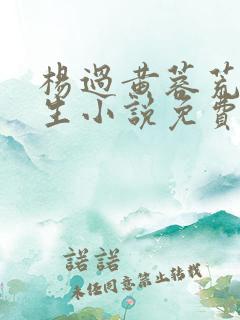 楊過黃蓉荒
生小說免費
諾諾
未經同意禁止转载